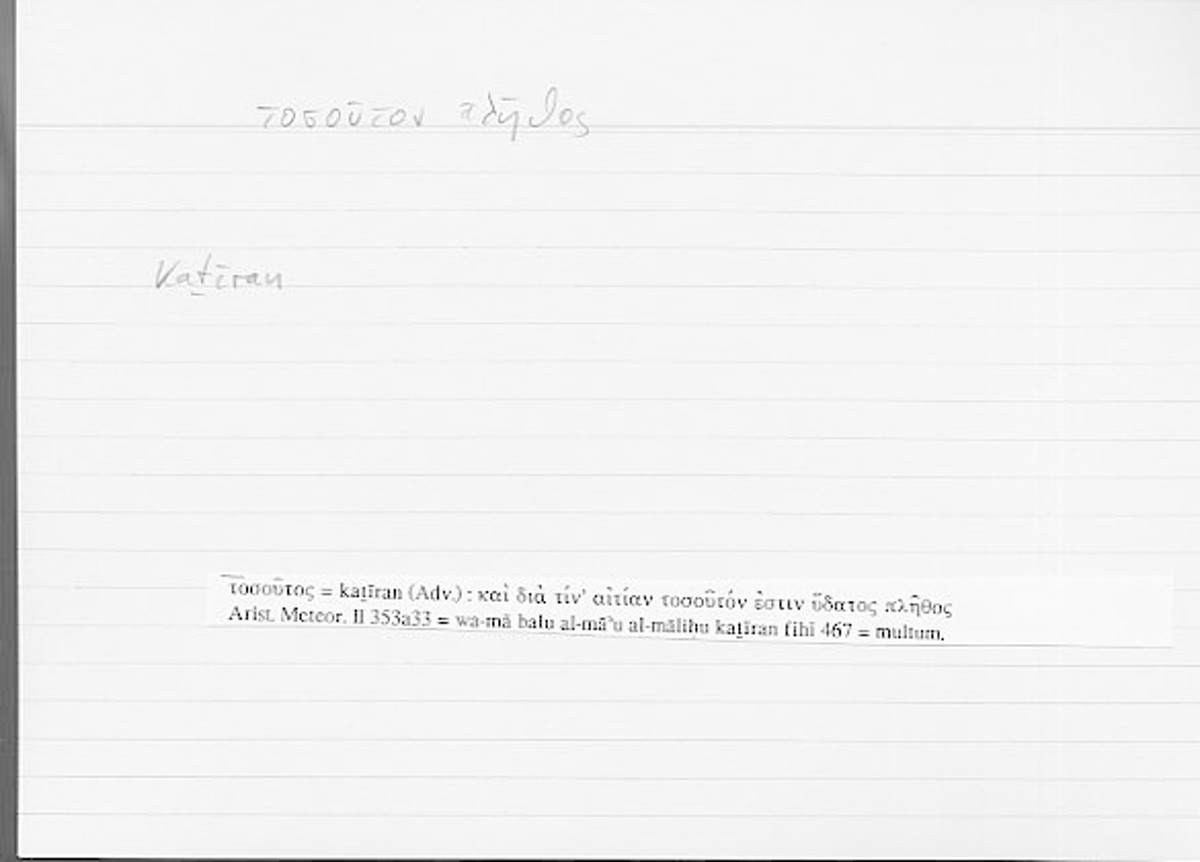 τοσοῦτον πλῆθος
kaṯīran
τοσοῦτος = kaṯīran (Adv.) : καὶ διὰ τίν' αἰτίαν τοσοῦτόν ἐστιν ὕδατος πλῆθος
Arist. Meteor. II 353a33 = wa-mā balu al-māʾu al-māliḥu kaṯīran fīhi 467 = multum.